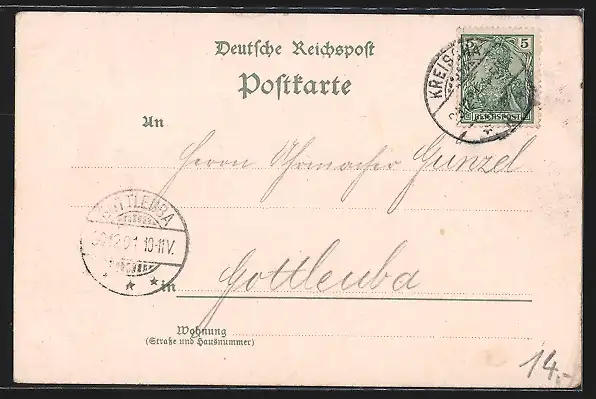 Deutsche Reichspost
Postkarte
5
REICHSPOST
KREISCHA
An
Herrn Uhrmacher Gunzel
GOTTLEUBA
30.12.01 10-11V.
in Gottleuba
Wohnung
(Straße und Hausnummer)
14.-